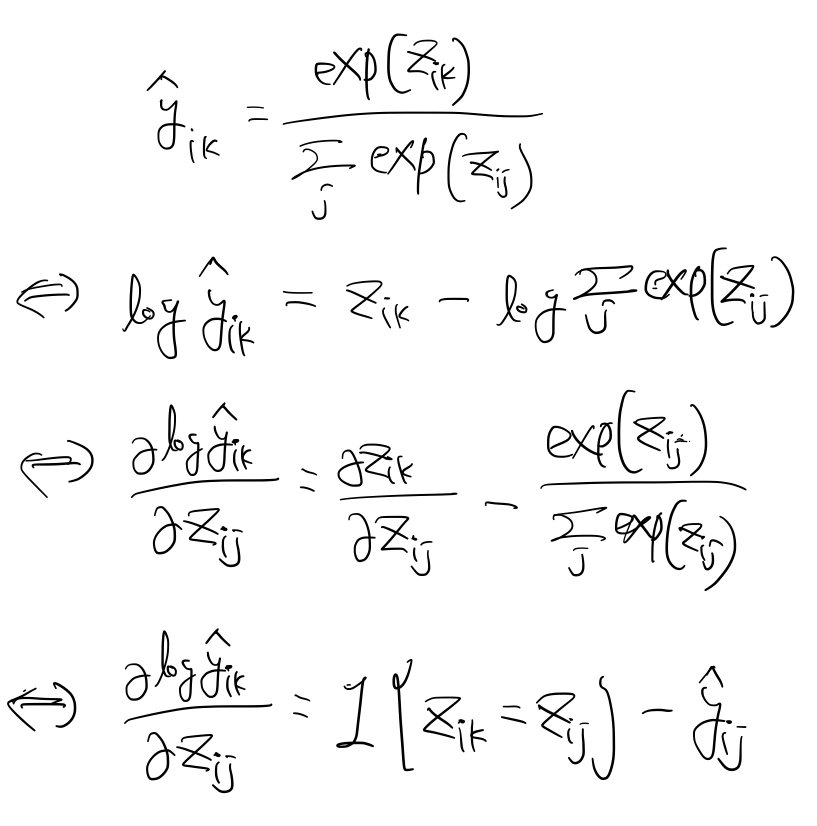 \hat{y}_{ik} = \frac{\exp(z_{ik})}{\sum_j \exp(z_{ij})}
⇔ \log \hat{y}_{ik} = z_{ik} - \log \sum_j \exp(z_{ij})
⇔ \frac{\partial \log \hat{y}_{ik}}{\partial z_{ij}} = \frac{\partial z_{ik}}{\partial z_{ij}} - \frac{\exp(z_{ij})}{\sum_j \exp(z_{ij})}
⇔ \frac{\partial \log \hat{y}_{ik}}{\partial z_{ij}} = 1(z_{ik} = z_{ij}) - \hat{y}_{ij}